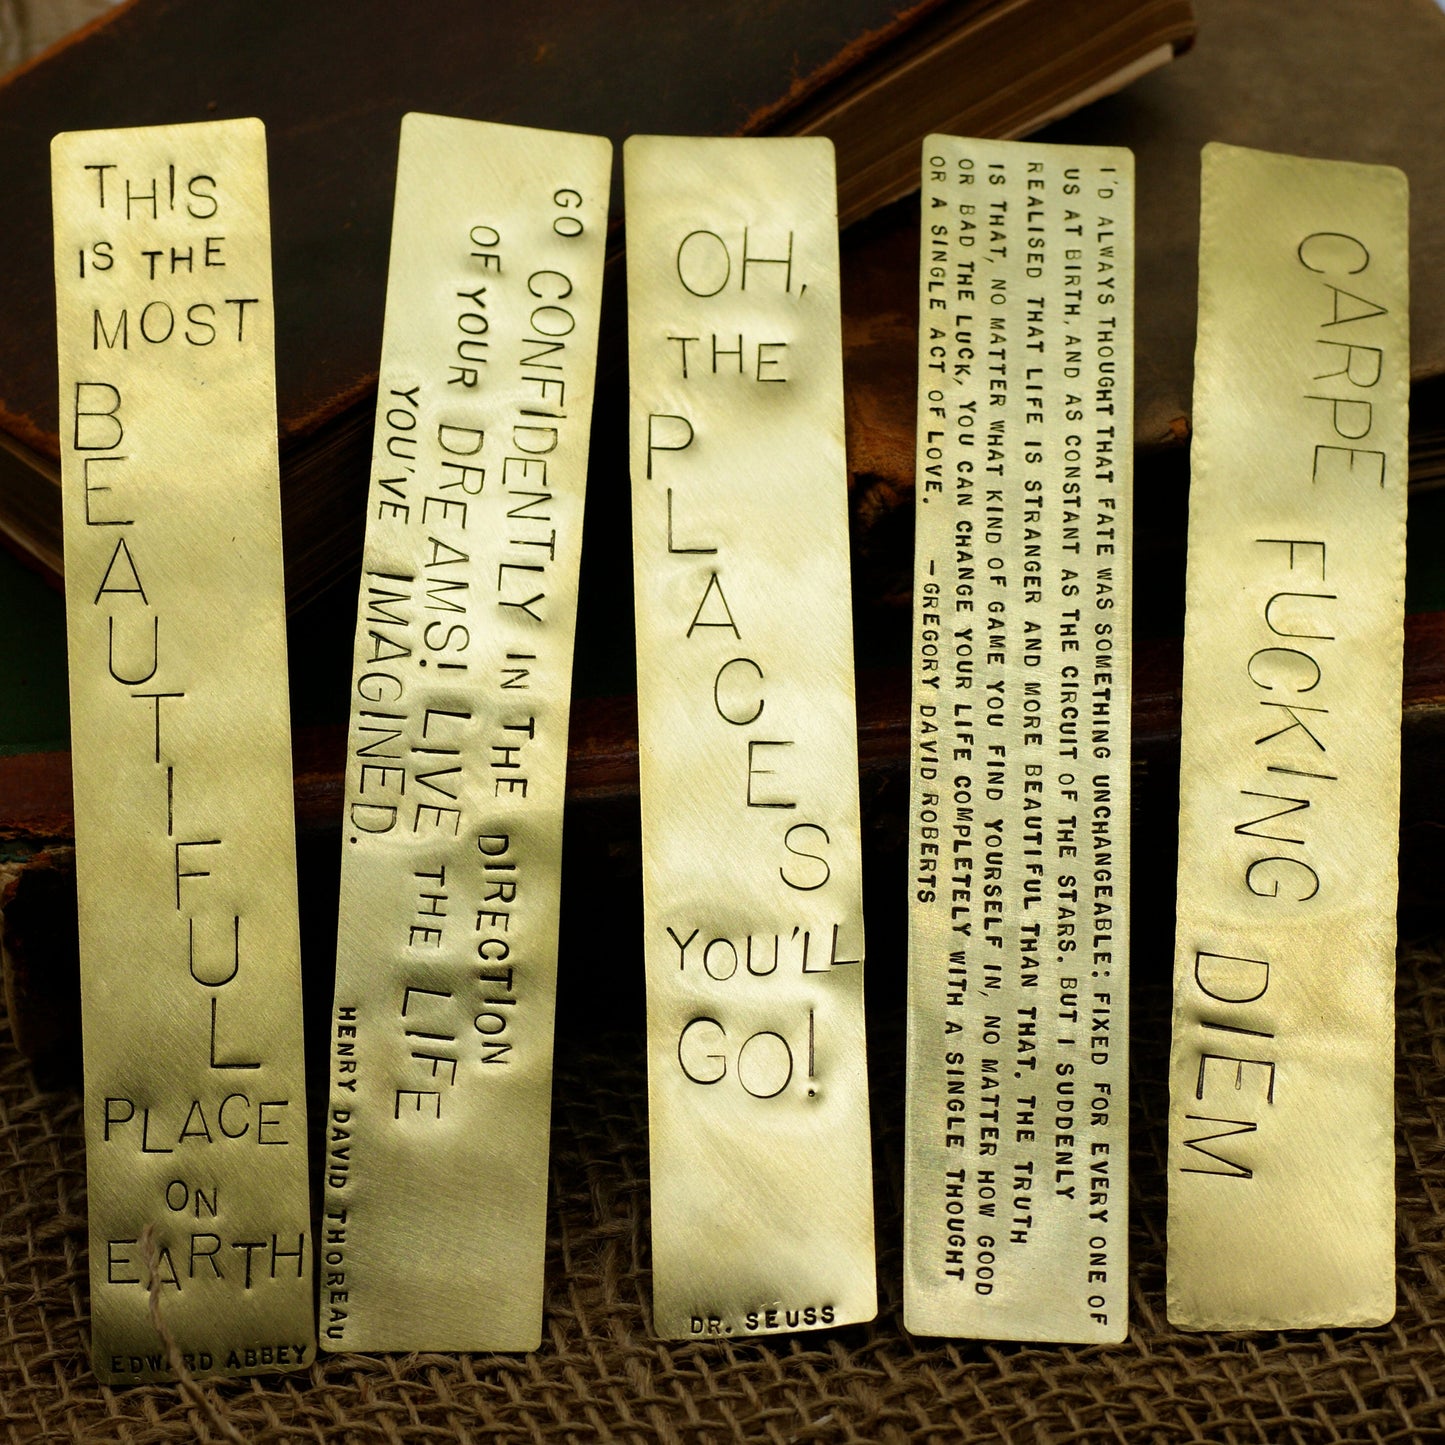 THIS
IS THE
MOST
BEAUTIFUL
PLACE
ON
EARTH
EDWARD ABBEY
GO CONFIDENTLY IN THE DIRECTION
OF YOUR DREAMS! LIVE THE LIFE
YOU'VE IMAGINED.
HENRY DAVID THOREAU
OH,
THE
PLACES
YOU'LL
GO!
DR. SEUSS
I'D ALWAYS THOUGHT THAT FATE WAS SOMETHING UNCHANGEABLE: FIXED FOR EVERY ONE OF
US AT BIRTH, AND AS CONSTANT AS THE CIRCUIT OF THE STARS. BUT I SUDDENLY
REALISED THAT LIFE IS STRANGER AND MORE BEAUTIFUL THAN THAT. THE TRUTH
IS THAT, NO MATTER WHAT KIND OF GAME YOU FIND YOURSELF IN, NO MATTER HOW GOOD
OR BAD THE LUCK, YOU CAN CHANGE YOUR LIFE COMPLETELY WITH A SINGLE THOUGHT
OR A SINGLE ACT OF LOVE. —GREGORY DAVID ROBERTS
CARPE
FUCKING
DIEM